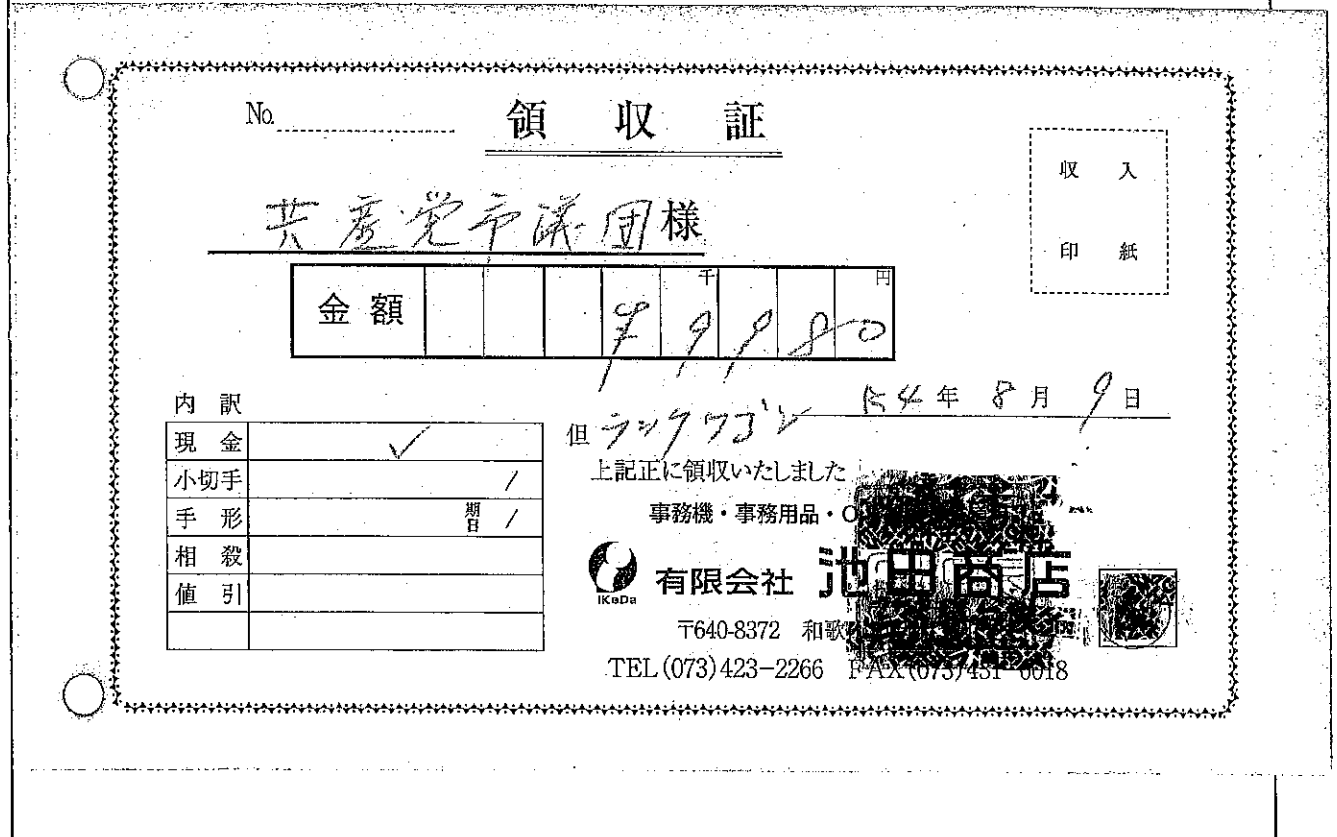 No. 領収証
収入
印紙
共産党市議団様
金額 千 円
¥9,980
R4年8月9日
内訳
但 ラックワゴン
現金 ✓
上記正に領収いたしました
小切手 /
手形 期日 /
事務機・事務用品・O
相殺
IKeDa 有限会社 池田商店
値引
〒640-8372 和歌
TEL(073)423-2266 FAX(073)431-6018